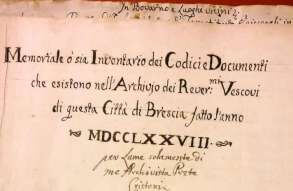 In Bovarno e Luoghi vicini
Memoriale ò sia Inventario dei Codici e Documenti
che esistono nell'Archivio dei Rever.mi Vescovi
di questa Città di Brescia fatto l'anno
MDCCLXXVIII.
per Lume solamente di
me Archivista Prete